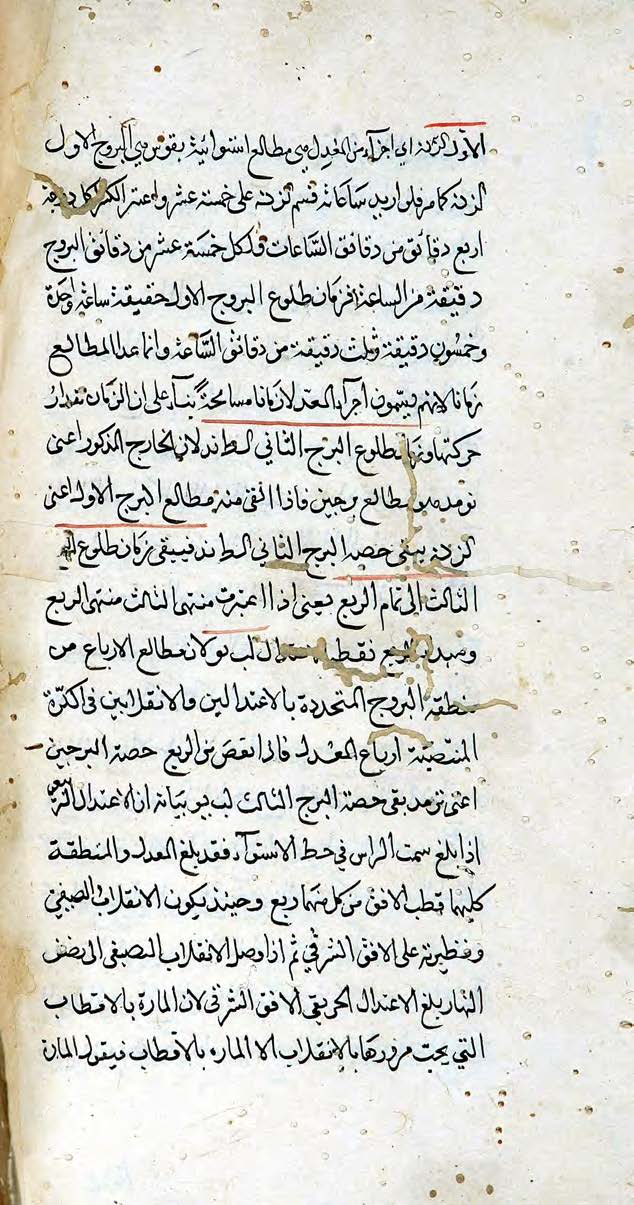 الاول كزنه اي اجزاء من المعدل هي مطالع استوائية بقوس هي البرج الاول
كزنه كما مر فلو اريد ساعاته قسم كزنه على خمسة عشر واعتبر الكسر لكل دقيقة
اربع دقائق من دقائق الساعات ولكل خمسة عشر من دقائق البروج
دقيقة من الساعة فزمان طلوع البروج الاول حقيقة ساعة واحدة
وخمسون دقيقة وثلث دقيقة من دقائق الساعة وانما عد المطالع
زمانا لانهم يسمون اجزاء المعدل ازمانا مسامحة بناء على ان الزمان مقدار
حركتها وزمان طلوع البرج الثاني كط ند لان الخارج المذكور اعني
نو مد هو مطالع برجين فاذا القي منه مطالع البرج الاول اعني
كزنه يبقى حصة البرج الثاني كط ند فيبقى زمان طلوع
الثالث الى تمام الربع يعني اذا اعتبرت منتهى الثالث منتهى الربع
ومبدء الربع نقطة الاعتدال لب يو لان مطالع الارباع من
منطقة البروج المتحددة بالاعتدالين والانقلابين في الكرة
المنتصبة ارباع المعدل فاذا نقص من الربع حصة البرجين
اعني نو مد بقى حصة البرج الثالث لب يو بيانه ان الاعتدال الربيعي
اذا بلغ سمت الراس في خط الاستواء فقد بلغ المعدل والمنطقة
كليهما قطب الافق من كل منهما ربع وحينئذ يكون الانقلاب الصيفي
ونظيرته على الافق الشرقي ثم اذا وصل الانقلاب الصيفي الى نصف
النهار بلغ الاعتدال الخريفي الافق الشرقي لان المارة بالاقطاب
التي يجب مرورها بالانقلاب الا المارة بالاقطاب فيقول المارة